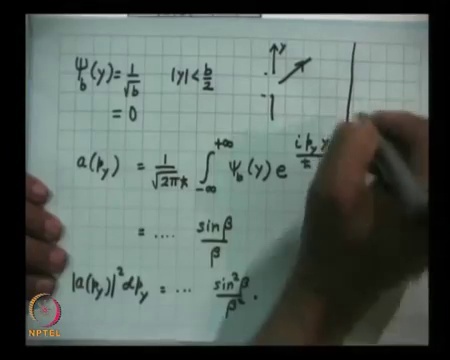 ψ_b(y) = 1/√b |y| < b/2
= 0
y
a(p_y) = 1/√(2πħ) ∫_{-∞}^{+∞} ψ_b(y) e^{i p_y y/ħ}
= .... sinβ/β
|a(p_y)|² dp_y = ... sin²β/β² .
NPTEL